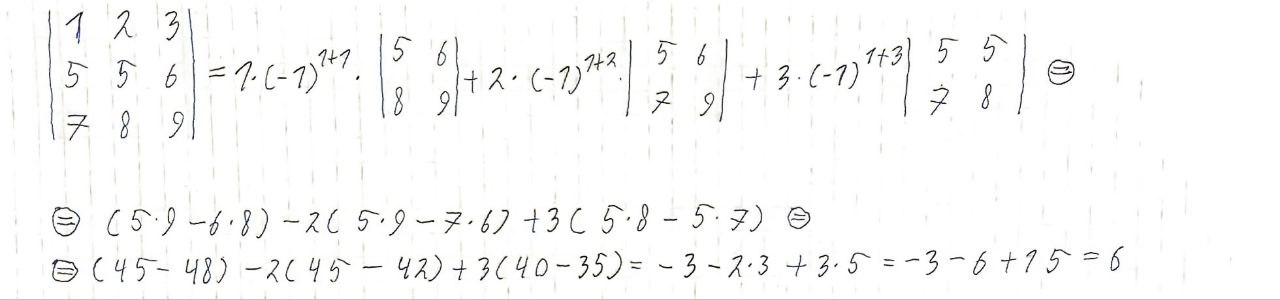 | 1 2 3 |
| 5 5 6 | = 1·(-1)^{1+1} · | 5 6 | + 2·(-1)^{1+2} · | 5 6 | + 3·(-1)^{1+3} | 5 5 | ⊜
| 7 8 9 | | 8 9 | | 7 9 | | 7 8 |
⊜ (5·9-6·8) -2(5·9-7·6) +3(5·8-5·7) ⊜
⊜ (45-48) -2(45-42)+3(40-35)= -3-2·3+3·5=-3-6+15=6